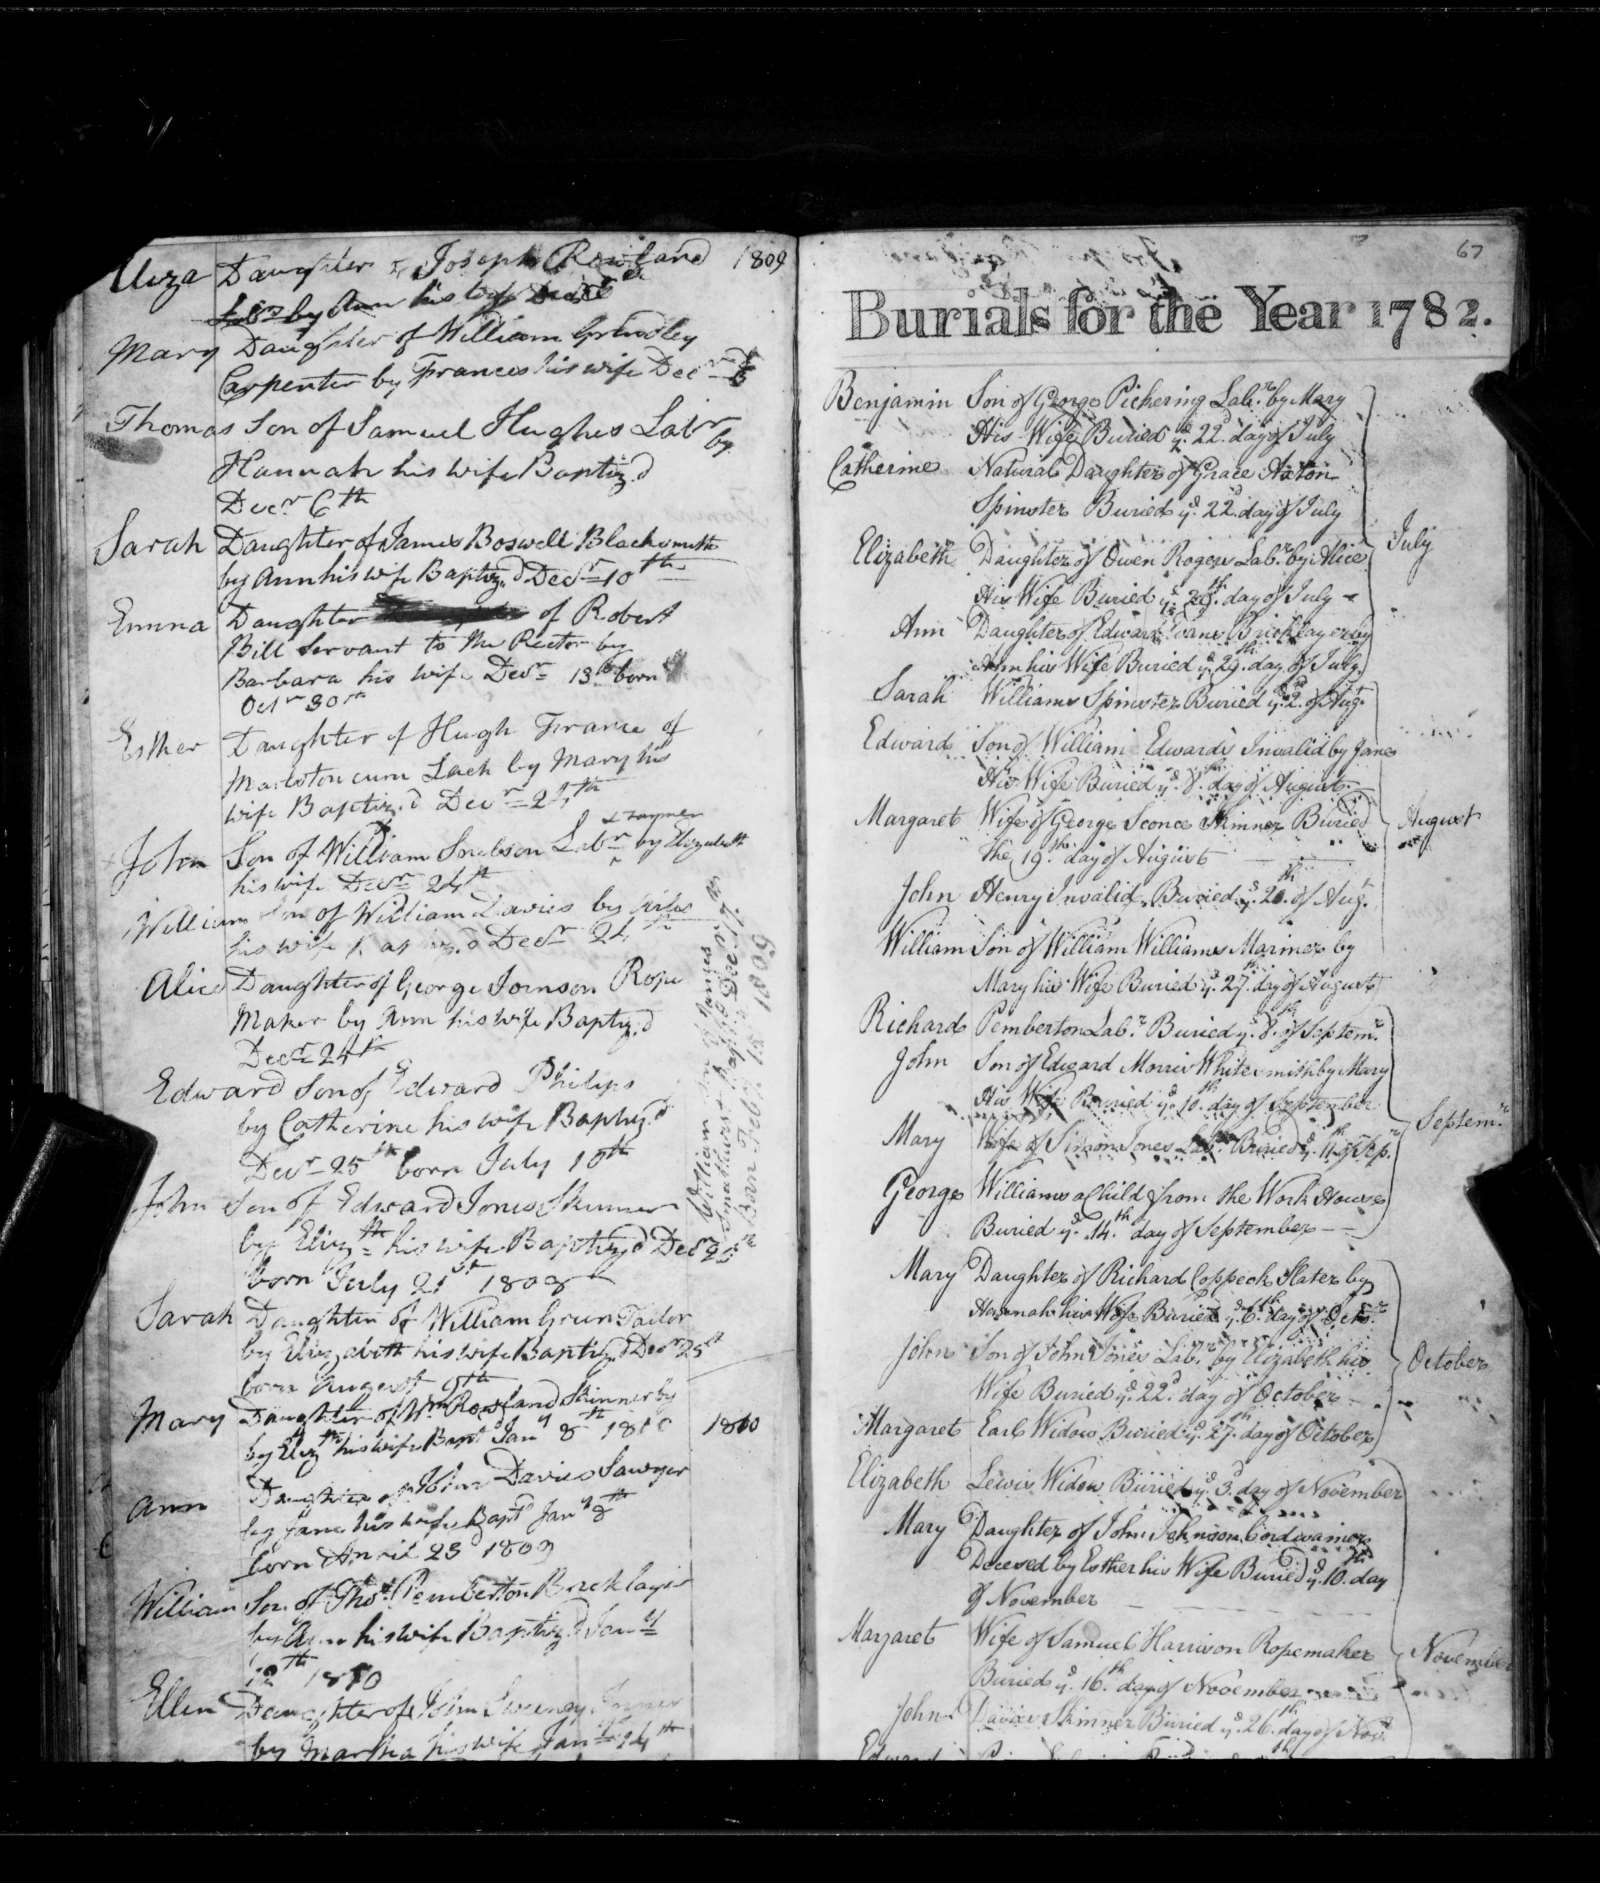 Eliza Daughter of Joseph Rowland 1809
by Ann his wife Decr
Mary Daughter of William Grindley
Carpenter by Frances his wife Decr
Thomas Son of Samuel Hughes Labr by
Hannah his wife Baptiz.d
Decr 6th
Sarah Daughter of James Boswell Blacksmith
by Ann his wife Baptiz.d Decr 10th
Emma Daughter of Robert
Bill Servant to the Rector by
Barbara his wife Decr 13th born
Octr 30th
Esther Daughter of Hugh France of
Marlston cum Lach by Mary his
wife Baptiz.d Decr 24th
John Son of William Labr by Elizabeth
his wife Decr 24th
William Son of William Davies by
his wife Decr 24th
Alice Daughter of George Jornson Rope
Maker by Ann his wife Baptiz.d
Decr 24th
Edward Son of Edward Philips
by Catherine his wife Baptiz.d
Decr 25th born July 10th
John Son of Edward Jones Skinner
by Elizth his wife Baptiz.d Decr 25th
born July 21st 1808
Sarah Daughter of William Tailor
by Elizabeth his wife Baptiz.d Decr 25th
born August 9th
Mary Daughter of Wm Rowland Skinner by
by Elizth his wife Bapt.d Jany 8th 1810 1810
Ann Daughter of John Davies Sawyer
by Jane his wife Bapt.d Jany 8th
born April 23 1809
William Son of Thos. Pemberton Bricklayer
by Ann his wife Baptiz.d Jany
12th 1810
Ellin Daughter of John
by Martha his wife Jany 14th
William Son of James
Smathurst Bapt.d Decr 17th
Born Feby 15 1809
67
Burials for the Year 1782.
Benjamin Son of George Pickering Lab.r by Mary
His Wife Buried y.e 22.d day of July
Catherine Natural Daughter of Grace Axton
Spinster Buried y.e 22.d day of July
Elizabeth Daughter of Owen Rogers Lab.r by Alice
His Wife Buried y.e 28.th day of July
July
Ann Daughter of Edward Evans Bricklayer by
Ann his Wife Buried y.e 29.th day of July
Sarah Williams Spinster Buried y.e 2.d of Aug.t
Edward Son of William Edwards Invalid by Jane
His Wife Buried y.e 8.th day of August
Margaret Wife of George Sconce Skinner Buried
the 19.th day of August
August
John Henry Invalid Buried y.e 20.th of Aug.t
William Son of William Williams Mariner by
Mary his Wife Buried y.e 27.th day of August
Richard Pemberton Lab.r Buried y.e 8.th of Septem.r
John Son of Edward Morris Whitesmith by Mary
His Wife Buried y.e 10.th day of September
Mary Wife of Simon Jones Lab.r Buried y.e 11.th of Sep.r
Septem.r
George Williams a Child from the Work House
Buried y.e 14.th day of September
Mary Daughter of Richard Coppeck Slater by
Hannah his Wife Buried y.e 6.th day of Octo.r
John Son of John Jones Lab.r by Elizabeth his
Wife Buried y.e 22.d day of October
October
Margaret Earl Widow Buried y.e 27.th day of October
Elizabeth Lewis Widow Buried y.e 3.d day of November
Mary Daughter of John Johnson Cordwainer
Decesed by Esther his Wife Buried y.e 10.th day
of November
Margaret Wife of Samuel Harrison Ropemaker
Buried y.e 16.th day of November
November
John Davies Skinner Buried y.e 26.th day of Nov.r
Edward